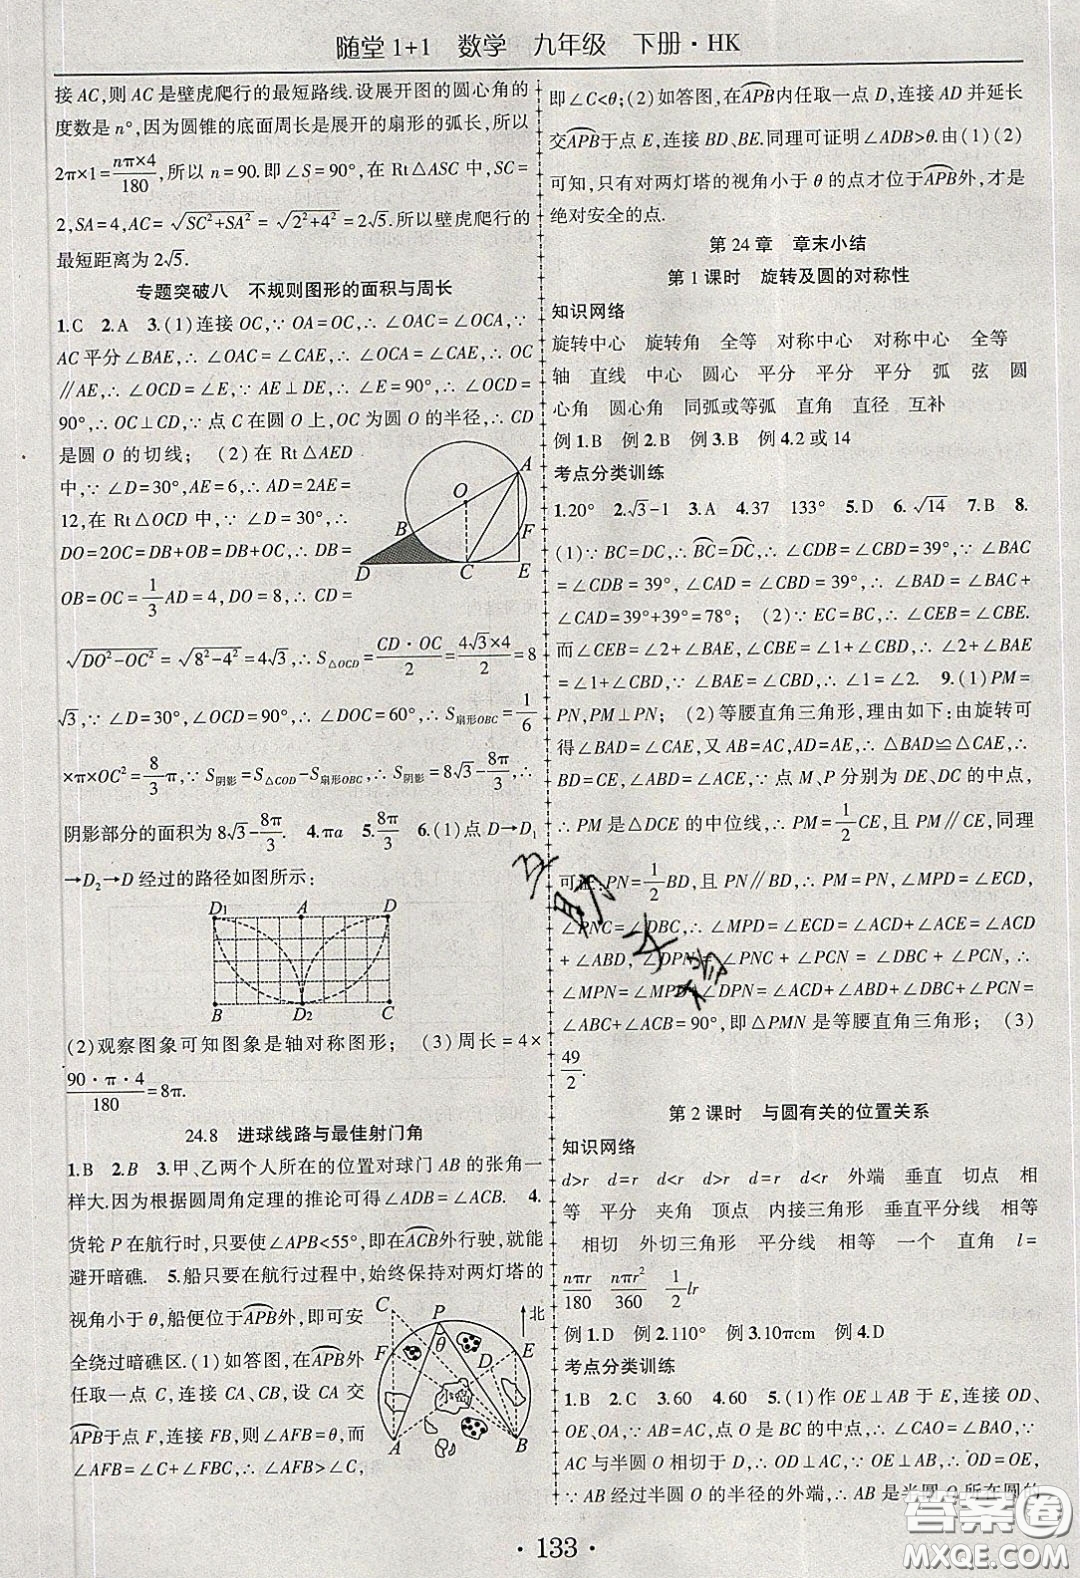 随堂1+1 数学 九年级 下册·HK
接AC,则AC是壁虎爬行的最短路线.设展开图的圆心角的
度数是n°,因为圆锥的底面周长是展开的扇形的弧长,所以
2π×1=nπ×4/180,所以n=90.即∠S=90°,在Rt△ASC中,SC=
2,SA=4,AC=√(SC²+SA²)=√(2²+4²)=2√5.所以壁虎爬行的
最短距离为2√5.
专题突破八 不规则图形的面积与周长
1.C 2.A 3.(1)连接OC,∵OA=OC,∴∠OAC=∠OCA,∵
AC平分∠BAE,∴∠OAC=∠CAE,∴∠OCA=∠CAE,∴OC
∥AE,∴∠OCD=∠E,∵AE⊥DE,∴∠E=90°,∴∠OCD=
90°,∴OC⊥CD,∵点C在圆O上,OC为圆O的半径,∴CD
是圆O的切线; (2)在Rt△AED
中,∵∠D=30°,AE=6,∴AD=2AE=
12,在Rt△OCD中,∵∠D=30°,∴
DO=2OC=DB+OB=DB+OC,∴DB=
OB=OC=1/3AD=4,DO=8,∴CD=
√(DO²-OC²)=√(8²-4²)=4√3,∴S△OCD=CD·OC/2=4√3×4/2=8
√3,∵∠D=30°,∠OCD=90°,∴∠DOC=60°,∴S扇形OBC=1/6
×π×OC²=8/3π,∵S阴影=S△COD-S扇形OBC,∴S阴影=8√3-8π/3,∴
阴影部分的面积为8√3-8π/3. 4.πa 5.8π/3 6.(1)点D→D₁
→D₂→D经过的路径如图所示:
A
O
B
F
D
C
E
D₁
A
D
B
D₂
C
(2)观察图象可知图象是轴对称图形; (3)周长=4×
90·π·4/180=8π.
24.8 进球线路与最佳射门角
1.B 2.B 3.甲、乙两个人所在的位置对球门AB的张角一
样大.因为根据圆周角定理的推论可得∠ADB=∠ACB. 4.
货轮P在航行时,只要使∠APB<55°,即在ACB外行驶,就能
避开暗礁. 5.船只要在航行过程中,始终保持对两灯塔的
视角小于θ,船便位于APB外,即可安
全绕过暗礁区.(1)如答图,在APB外
任取一点C,连接CA、CB,设CA交
APB于点F,连接FB,则∠AFB=θ,而
∠AFB=∠C+∠FBC,∴∠AFB>∠C,
C
P
北
F
θ
D
E
A
B
即∠C<θ;(2)如答图,在APB内任取一点D,连接AD并延长
交APB于点E,连接BD、BE.同理可证明∠ADB>θ.由(1)(2)
可知,只有对两灯塔的视角小于θ的点才位于APB外,才是
绝对安全的点.
第24章 章末小结
第1课时 旋转及圆的对称性
知识网络
旋转中心 旋转角 全等 对称中心 对称中心 全等
轴 直线 中心 圆心 平分 平分 平分 弧 弦 圆
心角 圆心角 同弧或等弧 直角 直径 互补
例1.B 例2.B 例3.B 例4.2或14
考点分类训练
1.20° 2.√3-1 3.A 4.37 133° 5.D 6.√14 7.B 8.
(1)∵BC=DC,∴BC=DC,∴∠CDB=∠CBD=39°,∵∠BAC
=∠CDB=39°,∠CAD=∠CBD=39°,∴∠BAD=∠BAC+
∠CAD=39°+39°=78°; (2)∵EC=BC,∴∠CEB=∠CBE.
而∠CEB=∠2+∠BAE,∠CBE=∠1+∠CBD,∴∠2+∠BAE
=∠1+∠CBD,∵∠BAE=∠CBD,∴∠1=∠2. 9.(1)PM=
PN,PM⊥PN; (2)等腰直角三角形,理由如下:由旋转可
得∠BAD=∠CAE,又AB=AC,AD=AE,∴△BAD≌△CAE,∴
BD=CE,∠ABD=∠ACE,∵点M、P分别为DE、DC的中点,
∴PM是△DCE的中位线,∴PM=1/2CE,且PM∥CE,同理
可证PN=1/2BD,且PN∥BD,∴PM=PN,∠MPD=∠ECD,
∠PNC=∠DBC,∴∠MPD=∠ECD=∠ACD+∠ACE=∠ACD
+∠ABD,∠DPN=∠PNC+∠PCN=∠DBC+∠PCN,∴
∠MPN=∠MPD+∠DPN=∠ACD+∠ABD+∠DBC+∠PCN=
∠ABC+∠ACB=90°,即△PMN是等腰直角三角形; (3)
49/2.
第2课时 与圆有关的位置关系
知识网络
d>r d=r d<r d>r d=r d<r 外端 垂直 切点 相
等 平分 夹角 顶点 内接三角形 垂直平分线 相等
相切 外切三角形 平分线 相等 一个 直角 l=
nπr/180 nπr²/360 1/2lr
例1.D 例2.110° 例3.10πcm 例4.D
考点分类训练
1.B 2.C 3.60 4.60 5.(1)作OE⊥AB于E,连接OD、
OE、OA,∵AB=AC,点O是BC的中点,∴∠CAO=∠BAO,∵
AC与半圆O相切于D,∴OD⊥AC,∵OE⊥AB,∴OD=OE,
∵AB经过半圆O的半径的外端,∴AB是半圆O所在圆的
·133·
答案圈
MXQE.COM